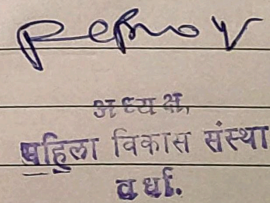 अध्यक्ष,
महिला विकास संस्था
वर्धा.